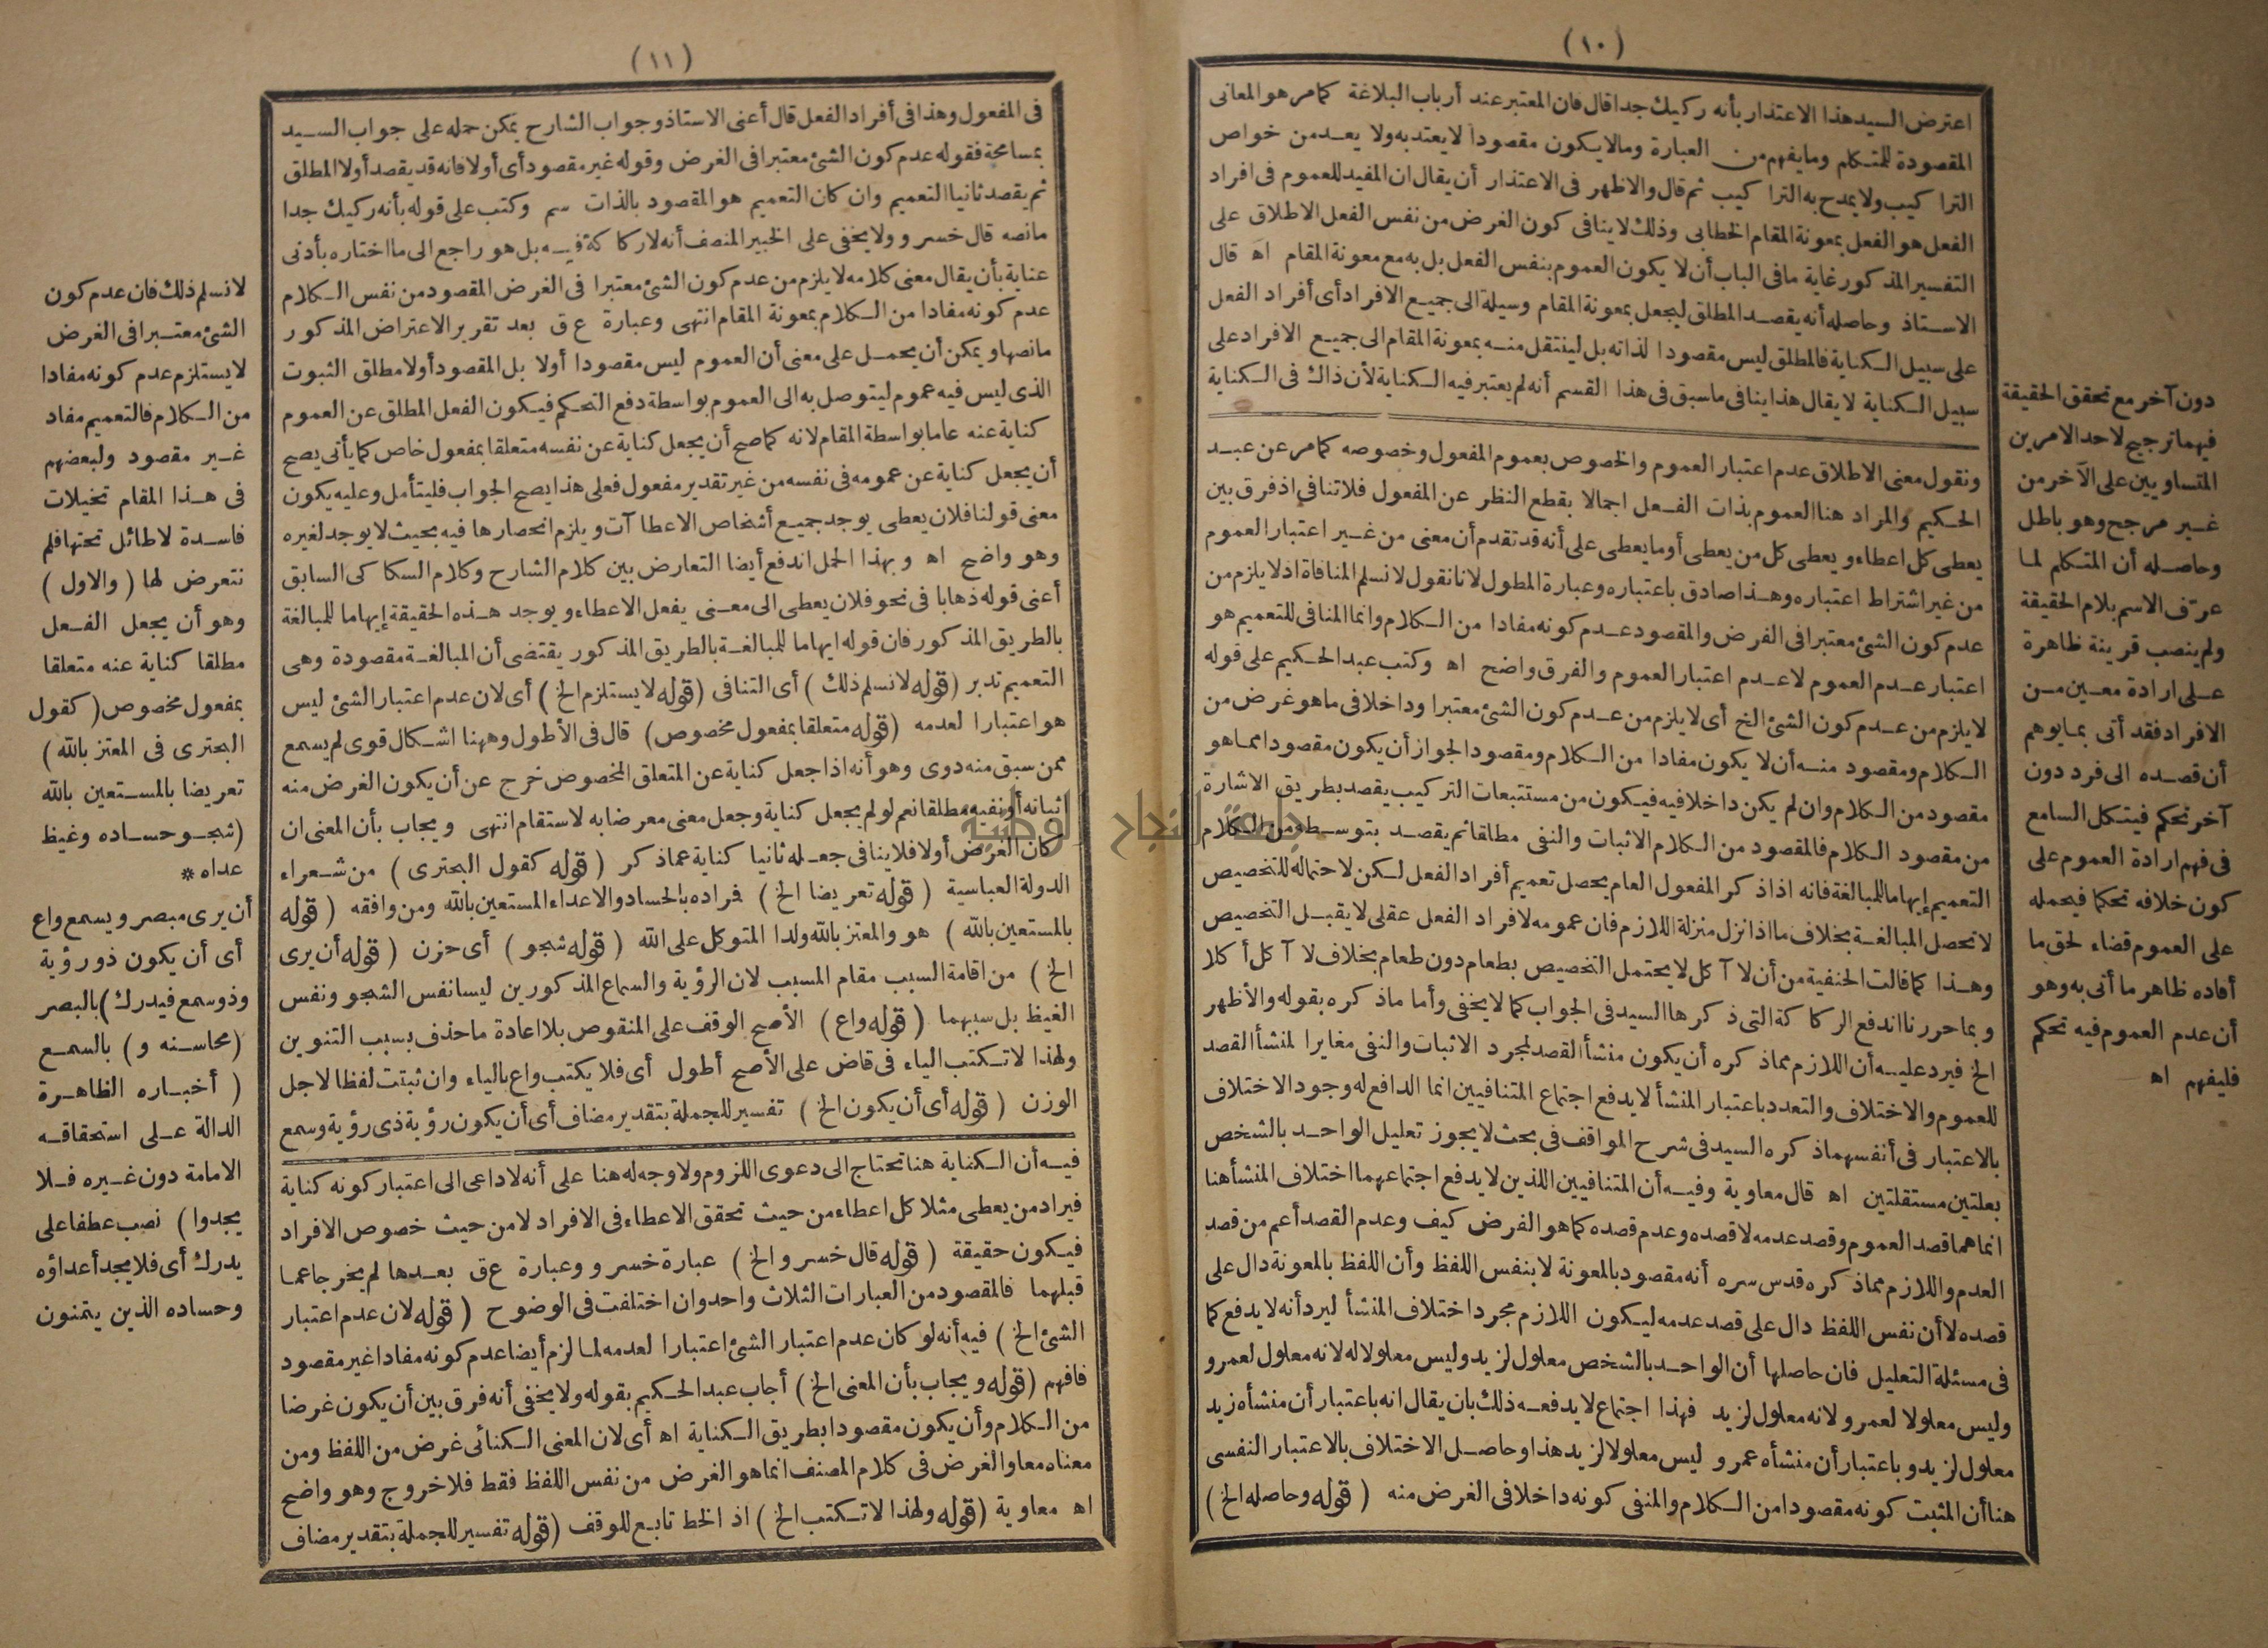 (١٠)
اعترض السيد هذا الاعتذار بأنه ركيك جدا قال فان المعتبر عند أرباب البلاغة كمامر هو المعانى
المقصودة للمتكلم وما يفهم من العبارة وما لا يكون مقصودا لا يعتد به ولا يعد من خواص
التراكيب ولا يمدح به التراكيب ثم قال والاظهر فى الاعتذار أن يقال ان المفيد للعموم فى افراد
الفعل هو الفعل بمعونة المقام الخطابى وذلك لا ينافى كون الغرض من نفس الفعل الاطلاق على
التفسير المذكور غاية ما فى الباب أن لا يكون العموم بنفس الفعل بل به مع معونة المقام اه قال
الاستاذ وحاصله أنه يقصد المطلق ليجعل بمعونة المقام وسيلة الى جميع الافراد أى أفراد الفعل
على سبيل الكناية فالمطلق ليس مقصودا لذاته بل لينتقل منه بمعونة المقام الى جميع الافراد على
سبيل الكناية لا يقال هذا ينافى ماسبق فى هذا القسم أنه لم يعتبر فيه الكناية لأن ذاك فى الكناية
ونقول معنى الاطلاق عدم اعتبار العموم والخصوص بعموم المفعول وخصوصه كمامر عن عبد
الحكيم والمراد هنا العموم بذات الفعل اجمالا بقطع النظر عن المفعول فلا تنافى اذ فرق بين
يعطى كل اعطاء ويعطى كل من يعطى أو ما يعطى على أنه قد تقدم أن معنى من غير اعتبار العموم
من غير اشتراط اعتباره وهذا صادق باعتباره وعبارة المطول لانا نقول لا نسلم المنافاة اذ لا يلزم من
عدم كون الشئ معتبرا فى الغرض والمقصود عدم كونه مفادا من الكلام وانما المنافى للتعميم هو
اعتبار عدم العموم لا عدم اعتبار العموم والفرق واضح اه وكتب عبد الحكيم على قوله
لا يلزم من عدم كون الشئ الخ أى لا يلزم من عدم كون الشئ معتبرا وداخلا فى ما هو غرض من
الكلام ومقصود منه أن لا يكون مفادا من الكلام ومقصودا لجواز أن يكون مقصودا مما هو
مقصود من الكلام وان لم يكن داخلا فيه فيكون من مستتبعات التركيب يقصد بطريق الاشارة
من مقصود الكلام فالمقصود من الكلام الاثبات والنفى مطلقا ثم يقصد بتوسطه من الكلام
التعميم إيهاما للمبالغة فانه اذا ذكر المفعول العام يحصل تعميم أفراد الفعل لكن لاحتماله للتخصيص
لا تحصل المبالغة بخلاف ما اذا نزل منزلة اللازم فان عمومه لافراد الفعل عقلى لا يقبل التخصيص
وهذا كما قالت الحنفية من أن لا آكل لا يحتمل التخصيص بطعام دون طعام بخلاف لا آكل أكلا
وبما حررنا اندفع الركاكة التى ذكرها السيد فى الجواب كما لا يخفى وأما ماذكره بقوله والأظهر
الخ فيرد عليه أن اللازم مماذكره أن يكون منشأ القصد لمجرد الاثبات والنفى مغايرا لمنشأ القصد
للعموم والاختلاف والتعدد باعتبار المنشأ لا يدفع اجتماع المتنافيين انما الدافع له وجود الاختلاف
بالاعتبار فى أنفسهما ذكره السيد فى شرح المواقف فى بحث لا يجوز تعليل الواحد بالشخص
بعلتين مستقلتين اه قال معاوية وفيه أن المتنافيين اللذين لا يدفع اجتماعهما اختلاف المنشأ هنا
انما هما قصد العموم وقصد عدمه لا قصده وعدم قصده كما هو الفرض كيف وعدم القصد أعم من قصد
العدم واللازم مماذكره قدس سره أنه مقصود بالمعونة لا بنفس اللفظ وأن اللفظ بالمعونة دال على
قصده لا أن نفس اللفظ دال على قصد عدمه ليكون اللازم مجرد اختلاف المنشأ ليرد أنه لا يدفع كما
فى مسئلة التعليل فان حاصلها أن الواحد بالشخص معلول لزيد وليس معلولا له لانه معلول لعمرو
وليس معلولا لعمرو لانه معلول لزيد فهذا اجتماع لا يدفعه ذلك بان يقال انه باعتبار أن منشأه زيد
معلول لزيد وباعتبار أن منشأه عمرو ليس معلولا لزيد هذا وحاصل الاختلاف بالاعتبار النفسى
هنا أن المثبت كونه مقصودا من الكلام والمنفى كونه داخلا فى الغرض منه (قوله وحاصله الخ)
دون آخر مع تحقق الحقيقة
فيهما ترجيح لاحد الامرين
المتساويين على الآخر من
غير مرجح وهو باطل
وحاصله أن المتكلم لما
عرّف الاسم بلام الحقيقة
ولم ينصب قرينة ظاهرة
على ارادة معين من
الافراد فقد أتى بما يوهم
أن قصده الى فرد دون
آخر تحكم فيتكل السامع
فى فهم ارادة العموم على
كون خلافه تحكما فيحمله
على العموم قضاء لحق ما
أفاده ظاهر ما أتى به وهو
أن عدم العموم فيه تحكم
فليفهم اه
(١١)
فى المفعول وهذا فى أفراد الفعل قال أعنى الاستاذ وجواب الشارح يمكن حمله على جواب السيد
بمسامحة فقوله عدم كون الشئ معتبرا فى الغرض وقوله غير مقصود أى أولا فانه قد يقصد أولا المطلق
ثم يقصد ثانيا التعميم وان كان التعميم هو المقصود بالذات سم وكتب على قوله بأنه ركيك جدا
مانصه قال خسرو ولا يخفى على الخبير المنصف أنه لا ركاكة فيه بل هو راجع الى ما اختاره بأدنى
عناية بأن يقال معنى كلامه لا يلزم من عدم كون الشئ معتبرا فى الغرض المقصود من نفس الكلام
عدم كونه مفادا من الكلام بمعونة المقام انتهى وعبارة ع ق بعد تقرير الاعتراض المذكور
مانصها ويمكن أن يحمل على معنى أن العموم ليس مقصودا أولا بل المقصود أولا مطلق الثبوت
الذى ليس فيه عموم ليتوصل به الى العموم بواسطة دفع التحكم فيكون الفعل المطلق عن العموم
كناية عنه عاما بواسطة المقام لانه كما صح أن يجعل كناية عن نفسه متعلقا بمفعول خاص كما يأتى يصح
أن يجعل كناية عن عمومه فى نفسه من غير تقدير مفعول فعلى هذا يصح الجواب فليتأمل وعليه يكون
معنى قولنا فلان يعطى يوجد جميع أشخاص الاعطاآت ويلزم انحصارها فيه بحيث لا يوجد لغيره
وهو واضح اه وبهذا الحمل اندفع أيضا التعارض بين كلام الشارح وكلام السكاكى السابق
أعنى قوله ذهابا فى نحو فلان يعطى الى معنى يفعل الاعطاء ويوجد هذه الحقيقة إيهاما للمبالغة
بالطريق المذكور فان قوله ايهاما للمبالغة بالطريق المذكور يقتضى أن المبالغة مقصودة وهى
التعميم تدبر (قوله لا نسلم ذلك) أى التنافى (قوله لا يستلزم الخ) أى لان عدم اعتبار الشئ ليس
هو اعتبارا لعدمه (قوله متعلقا بمفعول مخصوص) قال فى الأطول وههنا اشكال قوى لم يسمع
ممن سبق منه دوى وهو أنه اذا جعل كناية عن المتعلق المخصوص خرج عن أن يكون الغرض منه
اثباته أو نفيه مطلقا نعم لو لم يجعل كناية وجعل معنى معرضا به لاستقام انتهى ويجاب بأن المعنى ان
كان الغرض أولا فلا ينافى جعله ثانيا كناية عماذكر (قوله كقول البحترى) من شعراء
الدولة العباسية (قوله تعريضا الخ) فراده بالحساد والاعداء المستعين بالله ومن وافقه (قوله
بالمستعين بالله) هو والمعتز بالله ولدا المتوكل على الله (قوله شجو) أى حزن (قوله أن يرى
الخ) من اقامة السبب مقام المسبب لان الرؤية والسماع المذكورين ليسا نفس الشجو ونفس
الغيظ بل سببهما (قوله واع) الأصح الوقف على المنقوص بلا اعادة ما حذف بسبب التنوين
ولهذا لا تكتب الياء فى قاض على الأصح أطول أى فلا يكتب واع بالياء وان ثبتت لفظا لاجل
الوزن (قوله أى أن يكون الخ) تفسير للجملة بتقدير مضاف أى أن يكون رؤية ذى رؤية وسمع
فيه أن الكناية هنا تحتاج الى دعوى اللزوم ولا وجه له هنا على أنه لا داعى الى اعتبار كونه كناية
فيراد من يعطى مثلا كل اعطاء من حيث تحقق الاعطاء فى الافراد لا من حيث خصوص الافراد
فيكون حقيقة (قوله قال خسرو الخ) عبارة خسرو وعبارة ع ق بعدها لم يخرجا عما
قبلهما فالمقصود من العبارات الثلاث واحد وان اختلفت فى الوضوح (قوله لان عدم اعتبار
الشئ الخ) فيه أنه لو كان عدم اعتبار الشئ اعتبارا لعدمه لما لزم أيضا عدم كونه مفادا غير مقصود
فافهم (قوله ويجاب بأن المعنى الخ) أجاب عبد الحكيم بقوله ولا يخفى أنه فرق بين أن يكون غرضا
من الكلام وأن يكون مقصودا بطريق الكناية اه أى لان المعنى الكنائى غرض من اللفظ ومن
معناه معا والغرض فى كلام المصنف انما هو الغرض من نفس اللفظ فقط فلا خروج وهو واضح
اه معاوية (قوله ولهذا لا تكتب الخ) اذ الخط تابع للوقف (قوله تفسير للجملة بتقدير مضاف
لا نسلم ذلك فان عدم كون
الشئ معتبرا فى الغرض
لا يستلزم عدم كونه مفادا
من الكلام فالتعميم مفاد
غير مقصود ولبعضهم
فى هذا المقام تخيلات
فاسدة لا طائل تحتها فلم
نتعرض لها (والاول)
وهو أن يجعل الفعل
مطلقا كناية عنه متعلقا
بمفعول مخصوص (كقول
البحترى فى المعتز بالله)
تعريضا بالمستعين بالله
(شجو حساده وغيظ
عداه *
أن يرى مبصر ويسمع واع
أى أن يكون ذو رؤية
وذو سمع فيدرك) بالبصر
(محاسنه و) بالسمع
(أخباره الظاهرة
الدالة على استحقاقه
الامامة دون غيره فلا
يجدوا) نصب عطفا على
يدرك أى فلا يجد أعداؤه
وحساده الذين يتمنون
جامعة النجاح الوطنية